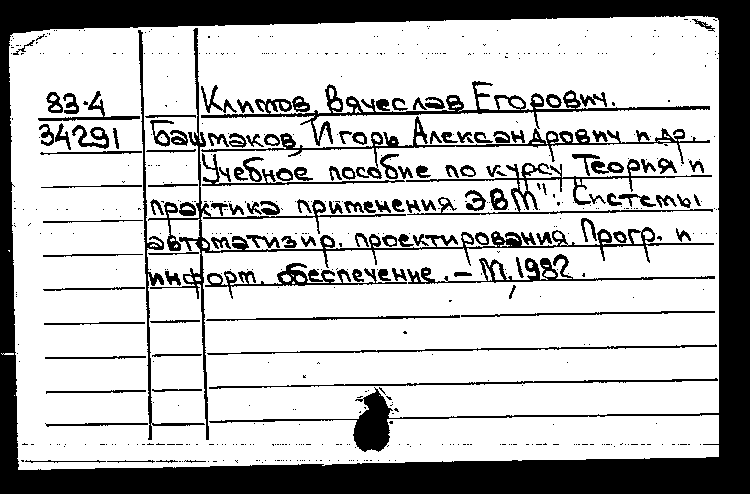 83-4 Климов, Вячеслав Егорович.
34291 Башмаков, Игорь Александрович и др.
Учебное пособие по курсу "Теория и
практика применения ЭВМ": Системы
автоматизир. проектирования. Прогр. и
информ. обеспечение. – М., 1982.